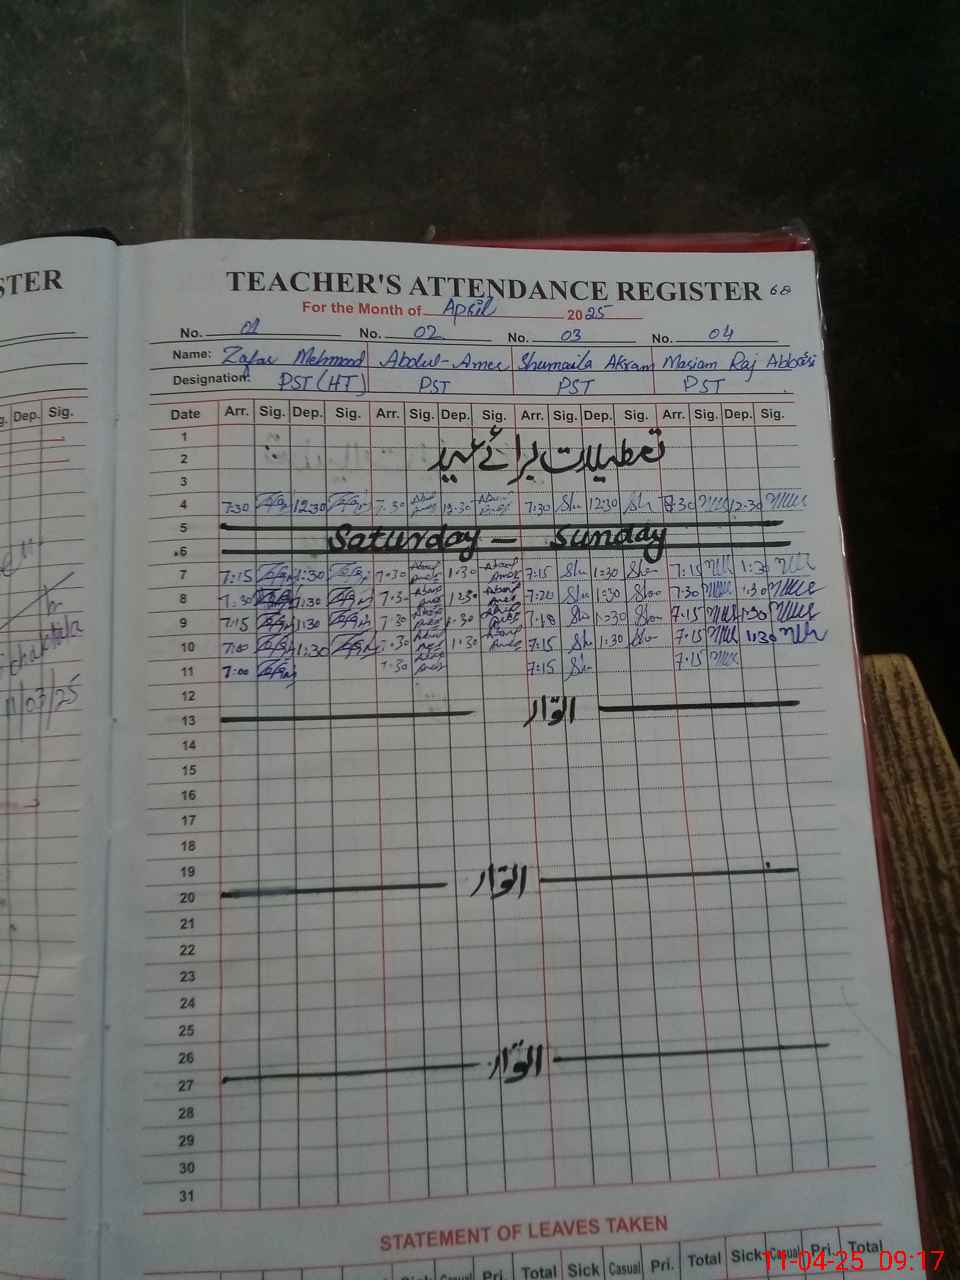 STER
TEACHER'S ATTENDANCE REGISTER 68
For the Month of April 2025
No. 01 No. 02 No. 03 No. 04
Name: Zafar Mehmood Abdul-Ameer Shumaila Akram Mariam Raj Abbasi
Designation: PST (HT) PST PST PST
g. Dep. Sig.
Date Arr. Sig. Dep. Sig. Arr. Sig. Dep. Sig. Arr. Sig. Dep. Sig. Arr. Sig. Dep. Sig.
1
2 تعطیلات برائے عید
3
4 7:30 12:30 7:30 12:30 7:30 Sh 12:30 Sh 7:30 12:30
5
Saturday — Sunday
6
7 7:15 1:30 7:30 1:30 7:15 Sh 1:30 Sh 7:15 1:30
8 7:30 1:30 7:30 1:30 7:20 Sh 1:30 Sh 7:30 1:30
9 7:15 1:30 7:30 1:30 7:18 Sh 1:30 Sh 7:15 1:30
10 7:00 1:30 7:30 1:30 7:15 Sh 1:30 Sh 7:15 1:30
11 7:00 7:30 7:15 Sh 7:15
12
13 اتوار
14
15
16
17
18
19
20 اتوار
21
22
23
24
25
26
27 اتوار
28
29
30
31
11/03/25
STATEMENT OF LEAVES TAKEN
Sick Casual Pri. Total Sick Casual Pri. Total Sick Casual Pri. Total
11-04-25 09:17